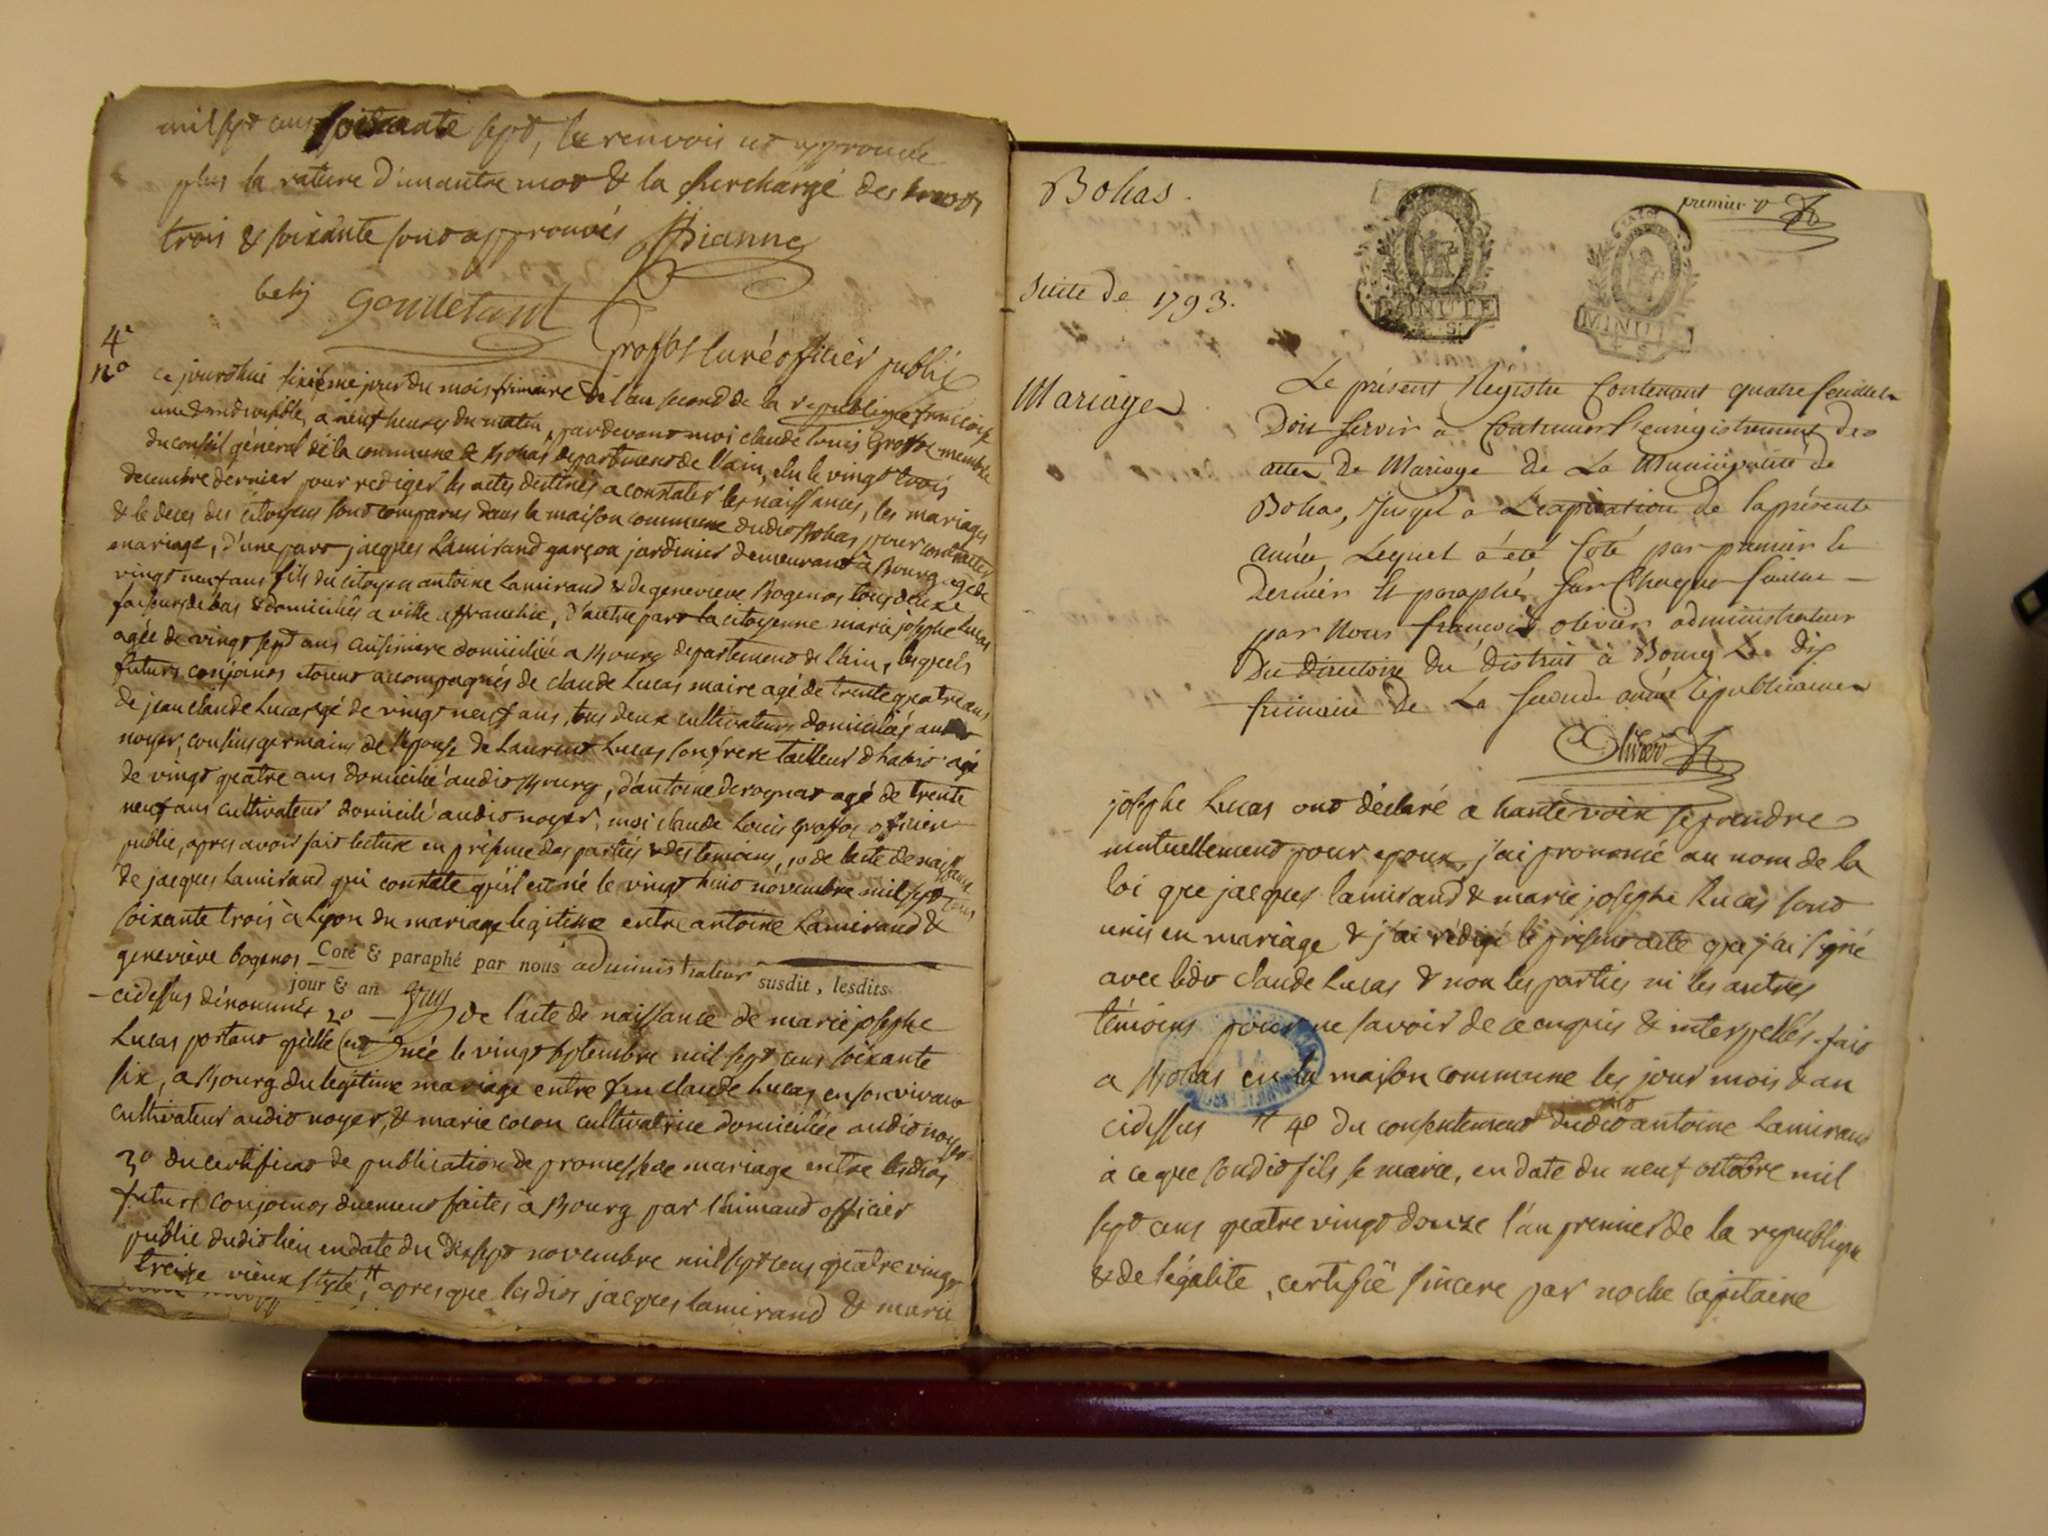 mil sept cens soixante sept, le renvois est approuvé
plus la rature d'un autre mot & la surchargé des mots
trois & soixante sont approuvés Dianne
Gouvetant
Groffos curé officier public
4e
no
ce jourdhui sixième jour du mois frimaire de l'an second de la republique francoise
une & indivisible, a neuf heures du matin, pardevant moi claude louis Groffos membre
du conseil général de la commune de Bohas departement de l'ain, elu le vingt trois
decembre dernier pour rediger les actes destinés a constater les naissances, les mariages
& le deces des citoyens sont comparus dans la maison commune dudit Bohas pour contracter
mariage, d'une part jacques Lamirand garçon jardinier demeurant à Bourg agé de
vingt neuf ans fils du citoyen antoine Lamirand & de genevieve Bogenos tous deux
faiseurs de bas & domiciliés a ville affranchie, d'autre part la citoyenne marie josephe Lucas
agée de vingt sept ans cuisiniere domiciliée a Bourg departement de l'ain, lesquels
futurs conjoints etoient acompagnés de claude Lucas maire agé de trente quatre ans
de jean claude Lucas agé de vingt neuf ans, tous deux cultivateurs domiciliés au
noyer, cousins germains de l'epouse de Laurent Lucas son frere tailleur d'habit agé
de vingt quatre ans domicilié audit Bourg, d'antoine derognat agé de trente
neuf ans cultivateur domicilié audit noyer, moi claude Louis Groffos officier
public, apres avoir fait lecture en présence des parties & des temoins, 1o de l'acte de naissance
de jacques Lamirand qui constate qu'il est né le vingt huit novembre mil sept cens
soixante trois à Lyon du mariage legitime entre antoine Lamirand &
geneviève bogenos Coté & paraphé par nous administrateur susdit, lesdits
jour & an
cidessus dénommés 2o de l'acte de naissance de marie josephe
Lucas portant qu'elle est née le vingt septembre mil sept cens soixante
six, a Bourg du legitime mariage entre feu claude Lucas en son vivant
cultivateur audit noyer, & marie cocon cultivatrice domiciliée audit noyer
3o du certificat de publication de promesse de mariage entre lesdits
futurs conjoints duement faites a Bourg par Chimaud officier
public dudit lieu en date du dix sept novembre mil sept cens quatre vingt
treize vieux style, apres que lesdits jacques lamirand & marie
Bohas.
premier
suite de 1793.
MINUTE
MINUTE
Mariages
Le présent Régistre Contenant quatre feuillets
Doit servir à Continuer l'enrégistrement des
actes De Mariage de La Municipalité de
Bohas, Jusqu'à L'expiration de la présente
année, Lequel a été Coté par premier &
Dernier Et paraphé sur Chaque feuillet
par Nous françois olivier administrateur
Du directoire du District à Bourg Le dix
frimaire de La seconde année Républicaine
Olivier
josephe Lucas ont déclaré a haute voix se prendre
mutuellement pour epoux, j'ai prononcé au nom de la
loi que jacques lamirand & marie josephe Lucas sont
unis en mariage & j'ai rédigé le présent acte que j'ai signé
avec ledit claude Lucas & non les parties ni les autres
témoins pour ne savoir de ce enquis & interpellés. fait
a Bohas en la maison commune les jour mois & an
cidessus # 4o du consentement dudit antoine Lamirand
à ce que sondit fils se marie, en date du neuf octobre mil
sept cens quatre vingt douze l'an premier de la republique
& de l'égalité, certifié sincere par roche capitaine